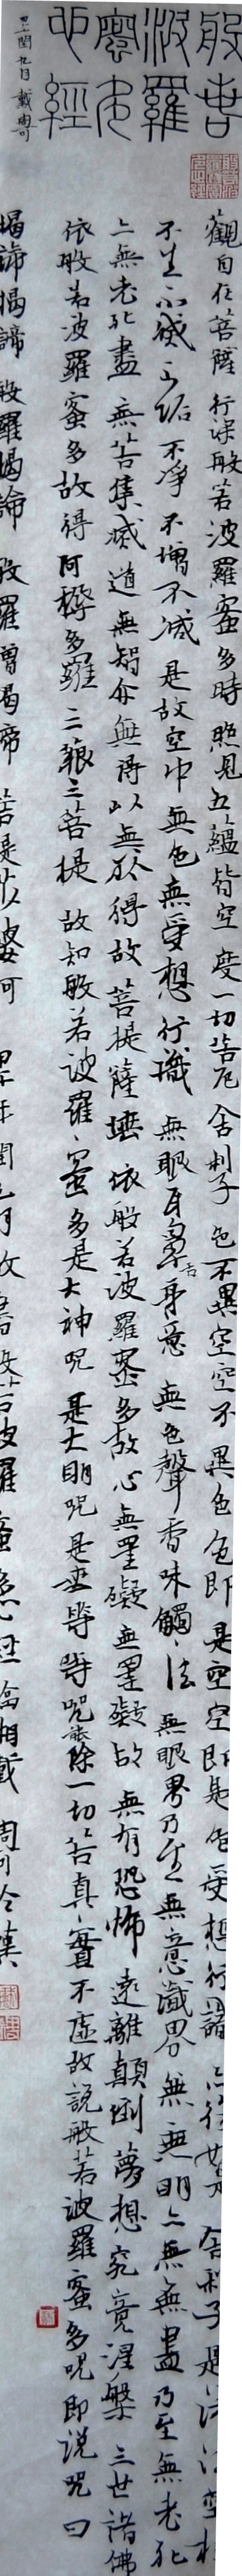 般若
波羅
蜜多
心經
觀自在菩薩 行深般若波羅蜜多時 照見五蘊皆空 度一切苦厄 舍利子 色不異空空不異色色即是空空即是色受想行識亦復如是 舍利子是諸法空相
不生不滅不垢不淨 不增不減 是故空中 無色無受想行識 無眼耳鼻舌身意 無色聲香味觸法 無眼界乃至無意識界 無無明亦無無明盡乃至無老死
亦無老死盡 無苦集滅道 無智亦無得以無所得故 菩提薩埵 依般若波羅蜜多故心無罣礙無罣礙故 無有恐怖 遠離顛倒夢想究竟涅槃 三世諸佛
依般若波羅蜜多故得阿耨多羅三藐三菩提 故知般若波羅蜜多是大神咒 是大明咒是無等等咒能除一切苦真實不虛故說般若波羅蜜多咒即說咒曰
揭諦揭諦 般羅揭諦 般羅僧揭帝 菩提薩婆訶